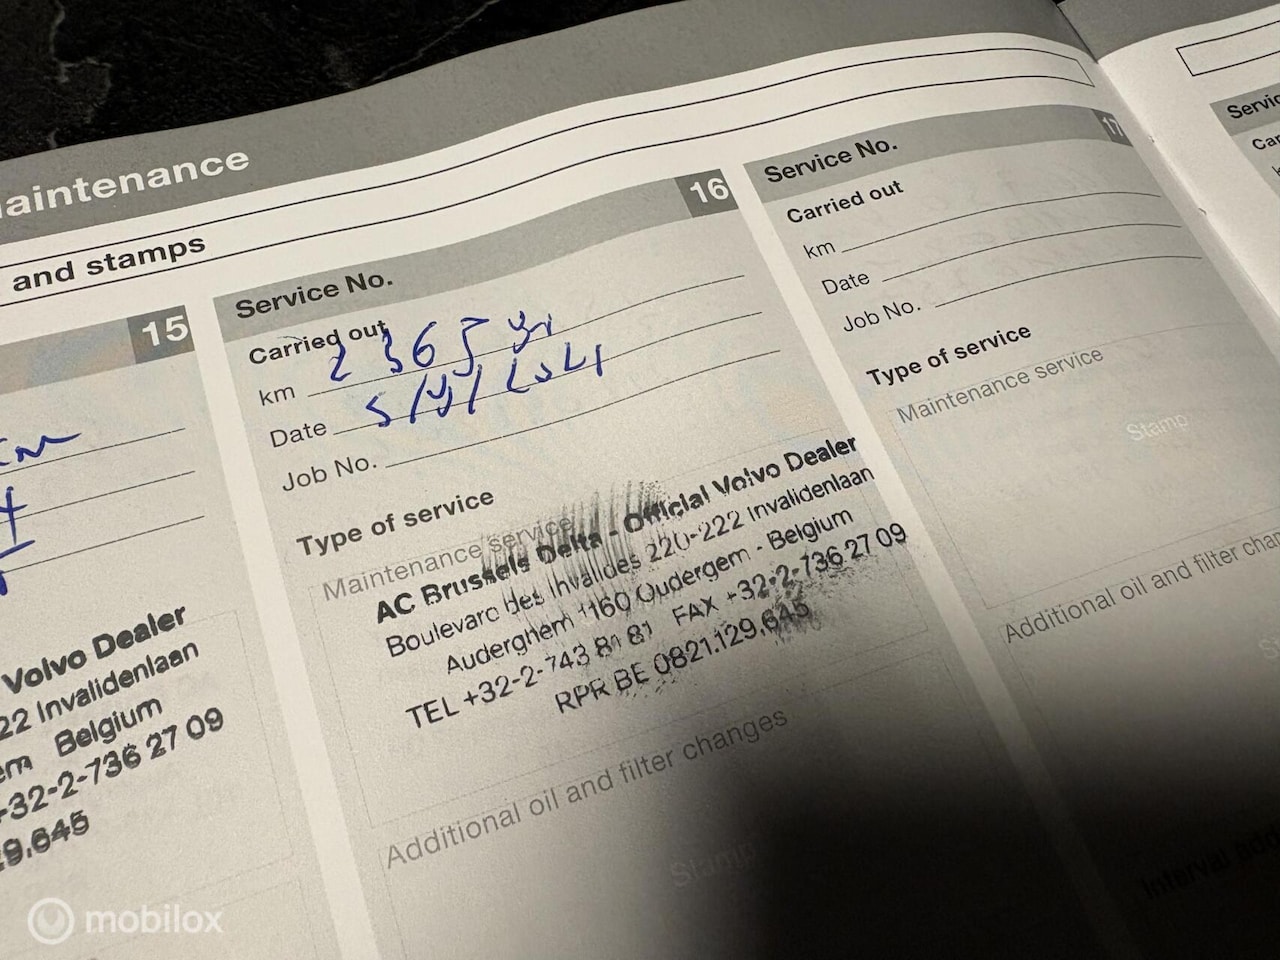 aintenance
and stamps
15
Volvo Dealer
22 Invalidenlaan
em Belgium
-32-2-736 27 09
9.645
Service No. 16
Carried out
km
Date
Job No.
Type of service
Maintenance service
AC Brussels Delta - Official Volvo Dealer
Boulevard des Invalides 220-222 Invalidenlaan
Auderghem 1160 Oudergem - Belgium
TEL +32-2-743 81 81 FAX +32-2-736 27 09
RPR BE 0821.129.645
Additional oil and filter changes
Stamp
Service No. 17
Carried out
km
Date
Job No.
Type of service
Maintenance service
Stamp
Additional oil and filter chan
Servic
Car
mobilox